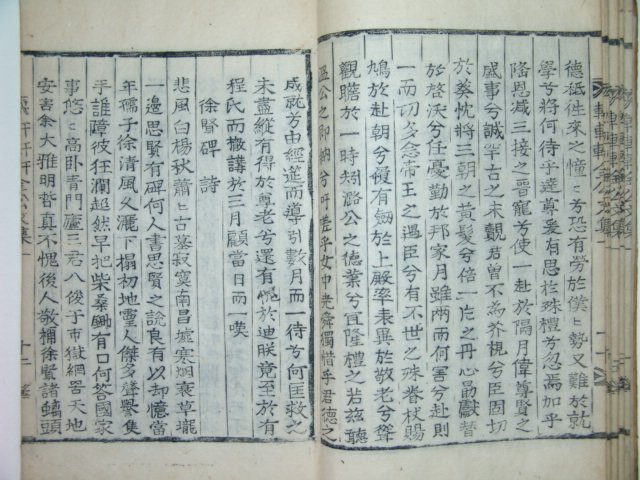 德祗徃來之憧〻兮恐有勞於僕〻勢又難於就
學兮將何待乎達尊爰有思於殊禮兮忽焉加乎
隆恩减三接之晉寵兮使一赴於隔月偉尊賢之
盛事兮誠罕古之未覿君曾不為芥梘兮臣固切
於葵忱將三朝之黃髮兮倍一片之丹心勗獻替
於啓沃兮任憂勤於邦家月雖兩而何害兮赴則
一而切多念帝王之遇臣兮有不世之殊眷杖賜
鳩於赴朝兮複有劒於上殿率表異於敬老兮聳
觀瞻於一時矧潞公之德業兮宜隆禮之若玆聽
温公之卽納兮吁差乎女中堯舜獨惜乎君德之
成就兮由經筵而導引數月而一待兮何匡救之
未盡縱有得於尊老兮還有愧於迪朕竟至於有
程氏而撤講於三月顧當日而一嘆
徐賢碑 詩
悲風白楊秋蕭〻古墓寂寞南昌墟寒烟衰草壠
一邊思賢有碑何人書思賢之說良有以却憶當
年孺子徐淸風久灑下榻初地靈人傑多聲譽隻
手誰障彼狂瀾超然早把柴桑鋤有口何答國家
事悠〻高卧靑門廬三君八俊于市獄網罟天地
安害余大雅明哲真不愧後人敬褅徐賢諸螭頭